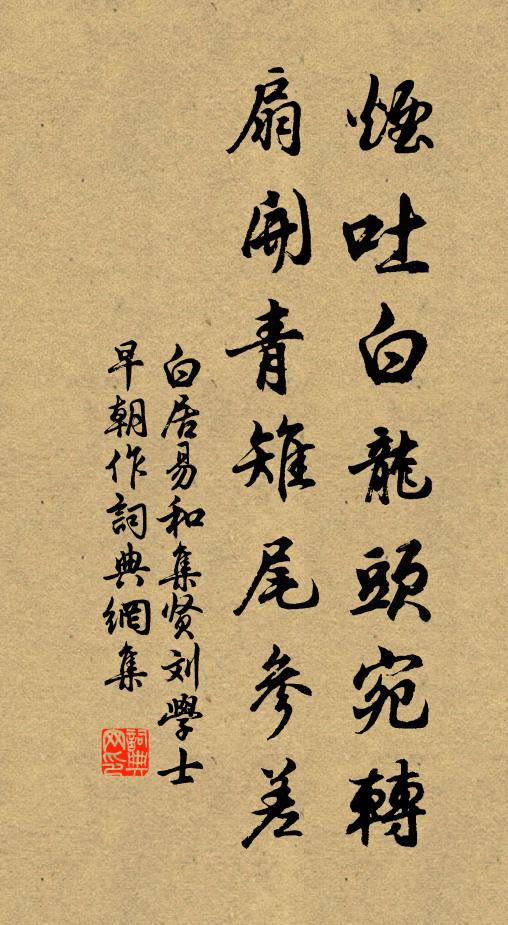 煙吐白龍頭宛轉
扇開青雉尾參差
白居易和集贤刘學士
早朝作詞典網集
詞典网印